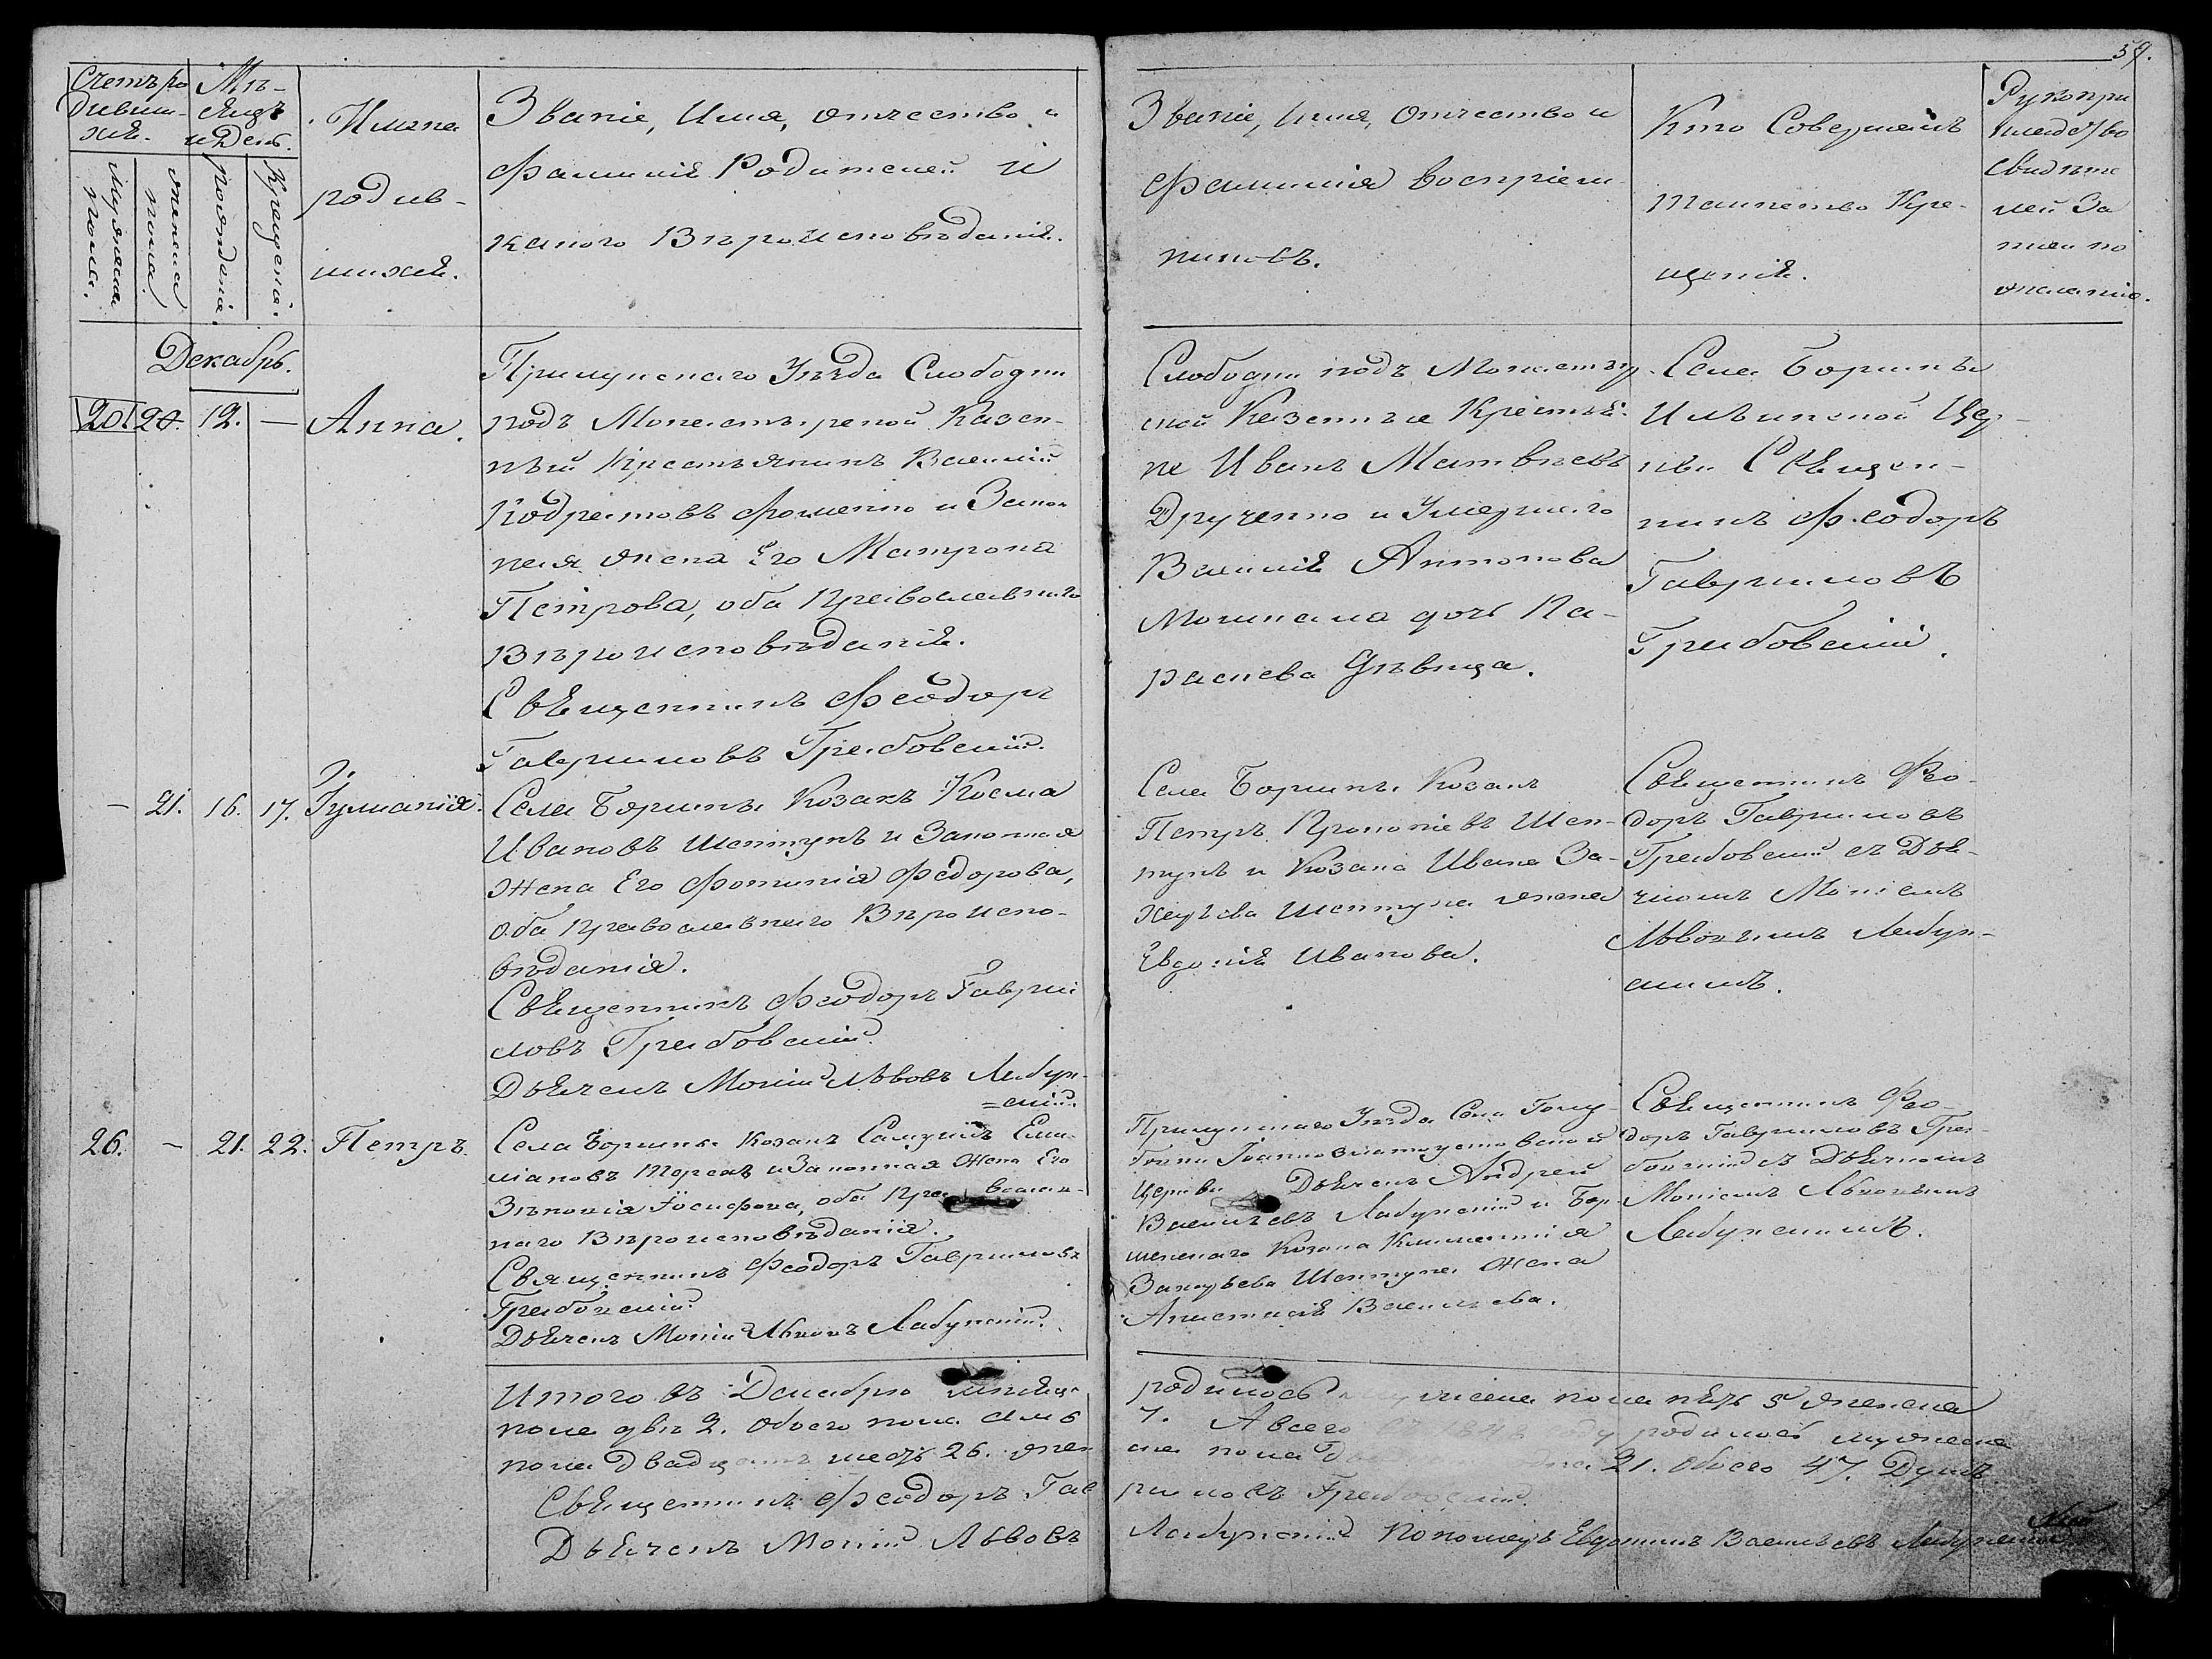 59.
Счетъ ро
дивши-
хся.
Мѣ-
сяцъ
и День.
мужеска
пола.
женска
пола
рожденія.
Крещенія.
Имена
родив-
шихся.
Званіе, Имя, отчество и
Фамилія Родителей и
какого Вѣроисповѣданія.
Званіе, Имя, Отчество и
Фамилія Воспріем-
никовъ.
Кто Совершалъ
Таинство Кре-
щенія.
Рукопри
кладство
Свидѣте
лей За
писи по
желанію.
Декабрь.
20. 12. — Анна.
Прилукскаго Уѣзда Слободки
подъ Монастырской Казен-
ный Крестьянинъ Василій
Кодратовъ Фоменко и Закон
ная жена Его Матрона
Петрова, оба Православнаго
Вѣроисповѣданія.
Священникъ Феодоръ
Гавриловъ Грабовскій.
Слободки подъ Монастыр
ской Казенные Крестья
не Иванъ Матвѣевъ
Друченко и Умершаго
Василія Антонова
дочь Па-
раскева Дѣвица.
Села Боршны
Ильинской Цер-
кви Священ-
никъ Феодоръ
Гавриловъ
Грабовскій.
— 21. 16. 17. Іуліанія.
Села Боршны Козакъ Косма
Ивановъ Шептунъ и Законная
Жена Его Фотинія Федорова,
Оба Православнаго Вѣроиспо-
вѣданія.
Священникъ Феодоръ Гаври
ловъ Грабовскій.
Дьячекъ Мокій Львовъ Лабун-
=скій.
Села Боршны Козакъ
Петръ Прокопіевъ Шеп-
тунъ и Козака Ивана За-
харьева Шептуна жена
Евдокія Иванова.
Священникъ Фео-
доръ Гавриловъ
Грабовскій съ Дья-
чкомъ Мокіемъ
Львовымъ Лабун-
скимъ.
26. — 21. 22. Петръ.
Села Боршны Козакъ Самуилъ Еми-
ліановъ и Законная Жена Его
Зиновія Іосифова, оба Православ-
наго Вѣроисповѣданія.
Священникъ Феодоръ Гавриловъ
Грабовскій.
Дьячекъ Мокій Львовъ Лабунскій.
Прилукскаго Уѣзда Села
Іоанно Златоустовской
Церкви Дьячекъ Андрей
Васильевъ Лабунскій и Бор-
шенскаго Козака Климентія
Захарьева Шептуна Жена
Анастасія Васильева.
Священникъ Фео-
доръ Гавриловъ Гра-
бовскій съ Дьячкомъ
Мокіемъ Львовымъ
Лабунскимъ.
Итого въ Декабрѣ мѣсяцѣ
родилось мужеска пола пять 5 женска
пола двѣ 2. Обоего пола семь
7. А всего году родилось мужеска
пола двадцать шесть 26. жен
ска пола 21. Обоего 47. Душъ.
Священникъ Феодоръ Гав
риловъ Грабовскій.
Дьячекъ Мокій Львовъ
Лабунскій Пономарь Евдокимъ Васильевъ Лабунскій